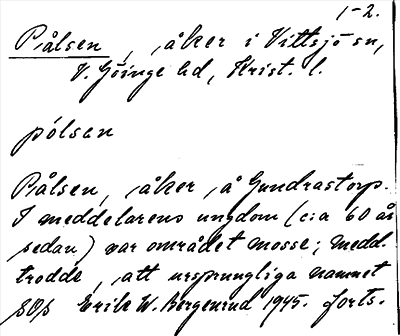 1-2.
Pålsen, åker i Vittsjö sn,
V. Göinge hd, Krist. l.
pólsen
Pålsen, åker, å Gundrastorp.
I meddelarens ungdom (c:a 60 år
sedan) var området mosse; medd.
trodde, att ursprungliga namnet
Erik W. Bergenrud 1945. forts.